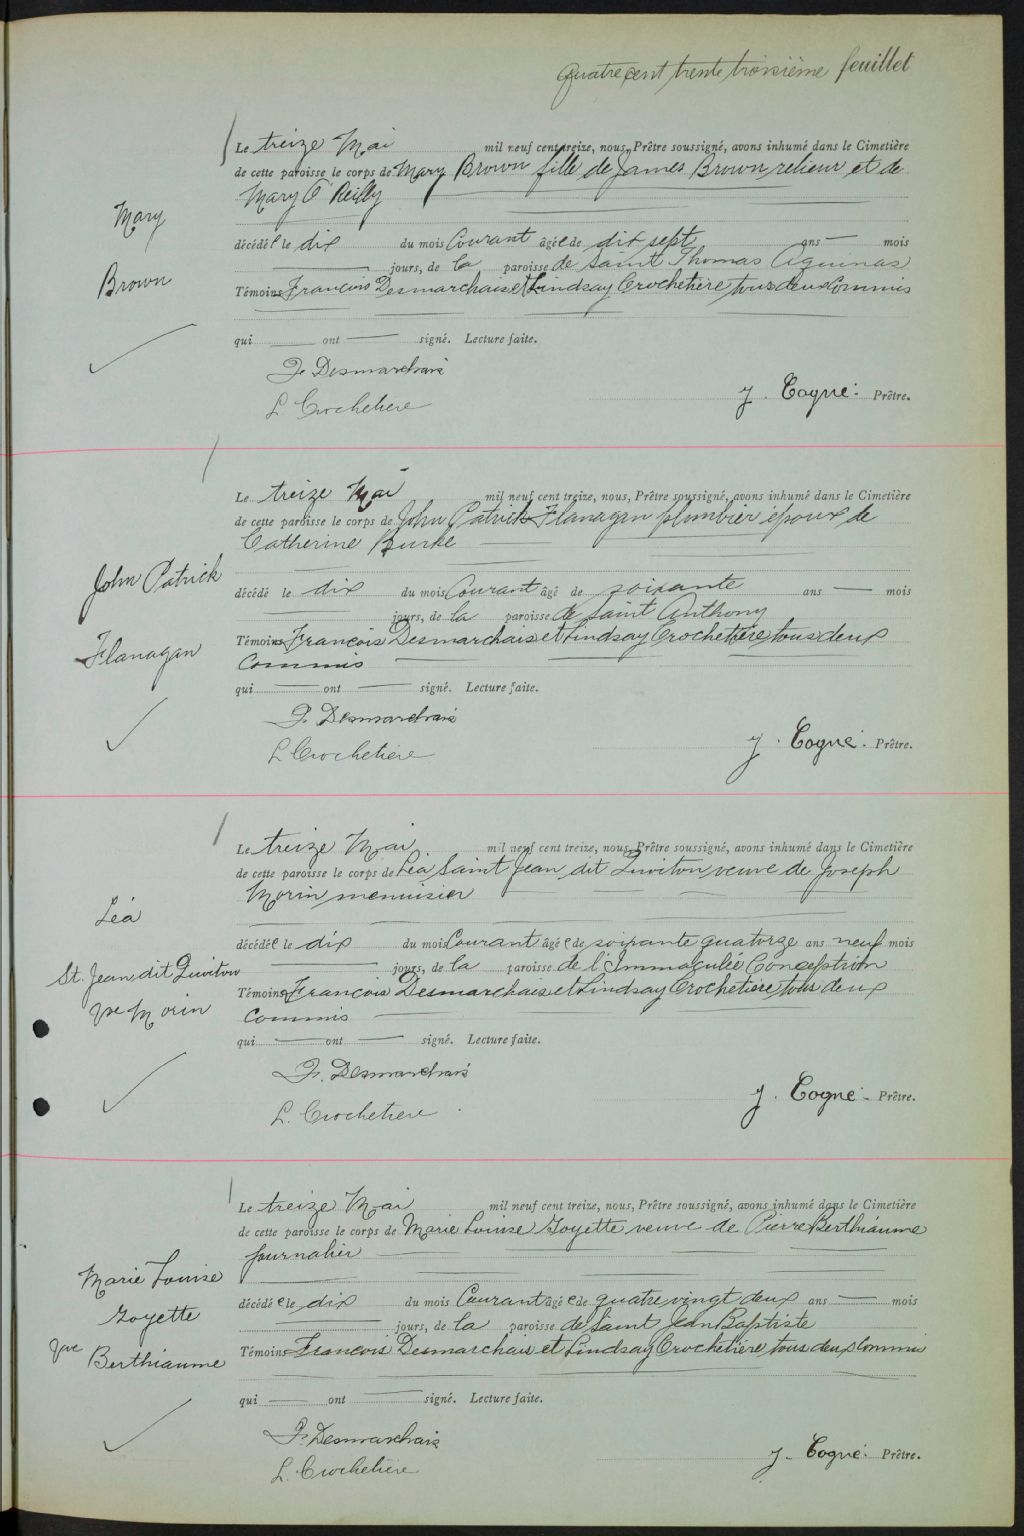 Quatre cent trente troisième feuillet
Le treize Mai mil neuf cent treize, nous, Prêtre soussigné, avons inhumé dans le Cimetière
de cette paroisse le corps de Mary Brown fille de James Brown relieur et de
Mary O'Reilly
Mary
décédée le dix du mois Courant âgée de dix sept ans — mois
jours, de la paroisse de Saint Thomas Aquinas
Brown
Témoins François Desmarchais et Lindsay Crochetière tous deux Commis
qui — ont — signé. Lecture faite.
F. Desmarchais
L. Crochetiere
J. Cogné. Prêtre.
Le treize Mai mil neuf cent treize, nous, Prêtre soussigné, avons inhumé dans le Cimetière
de cette paroisse le corps de John Patrick Flanagan plombier époux de
Catherine Burke
John Patrick
décédé le dix du mois Courant âgé de soixante ans — mois
jours, de la paroisse de Saint Anthony
Flanagan
Témoins François Desmarchais et Lindsay Crochetière tous deux
Commis
qui — ont — signé. Lecture faite.
F. Desmarchais
L Crochetiere
J. Cogné. Prêtre.
Le treize Mai mil neuf cent treize, nous, Prêtre soussigné, avons inhumé dans le Cimetière
de cette paroisse le corps de Léa Saint Jean dit Quiviton veuve de Joseph
Morin menuisier
Léa
décédée le dix du mois Courant âgée de soixante quatorze ans neuf mois
jours, de la paroisse de l'Immaculée Conception
St. Jean dit Quiviton
Vve Morin
Témoins François Desmarchais et Lindsay Crochetiere tous deux
Commis
qui — ont — signé. Lecture faite.
F. Desmarchais
L. Crochetiere
J. Cogné. Prêtre.
Le treize Mai mil neuf cent treize, nous, Prêtre soussigné, avons inhumé dans le Cimetière
de cette paroisse le corps de Marie Louise Goyette veuve de Pierre Berthiaume
journalier
Marie Louise
Goyette
décédée le dix du mois Courant âgée de quatre vingt deux ans — mois
jours, de la paroisse de Saint Jean Baptiste
Vve Berthiaume
Témoins François Desmarchais et Lindsay Crochetière tous deux Commis
qui — ont — signé. Lecture faite.
F. Desmarchais
L. Crochetière
J. Cogné. Prêtre.